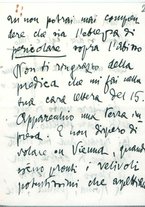 2
tu non potrai mai compren
dere che sia l'ebbrezza di
pericolare sopra l'abisso
Non ti ringrazio della
predica che mi fai nella
tua cara lettera del 15.
Apparecchio una Terra in
e non dispero di
volare su Vienna, quando
sieno pronti i velivoli
potentissimi che aspettiamo